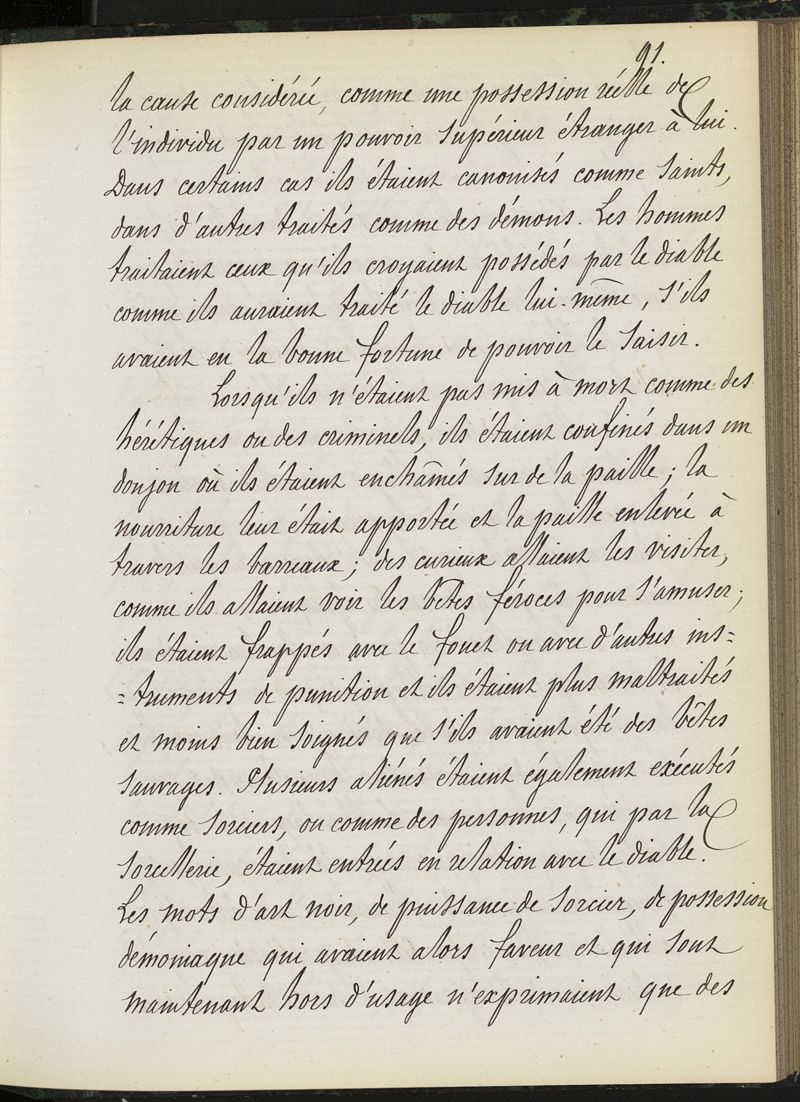 91.
la cause considérée, comme une possession réelle de
l'individu par un pouvoir supérieur étranger à lui.
Dans certains cas ils étaient canonisés comme saints,
dans d'autres traités comme des démons. Les hommes
traitaient ceux qu'ils croyaient possédés par le diable
comme ils auraient traité le diable lui-même, s'ils
avaient eu la bonne fortune de pouvoir le saisir.
Lorsqu'ils n'étaient pas mis à mort comme des
hérétiques ou des criminels, ils étaient confinés dans un
donjon où ils étaient enchaînés sur de la paille; la
nourriture leur était apportée et la paille enlevée à
travers les barreaux; des curieux allaient les visiter,
comme ils allaient voir les bêtes féroces pour s'amuser;
ils étaient frappés avec le fouet ou avec d'autres ins=
=truments de punition et ils étaient plus maltraités
et moins bien soignés que s'ils avaient été des bêtes
sauvages. Plusieurs aliénés étaient également exécutés
comme sorciers, ou comme des personnes, qui par la
sorcellerie, étaient entrées en relation avec le diable.
Les mots d'art noir, de puissance de sorcier, de possession
démoniaque qui avaient alors faveur et qui sont
maintenant hors d'usage n'exprimaient que des